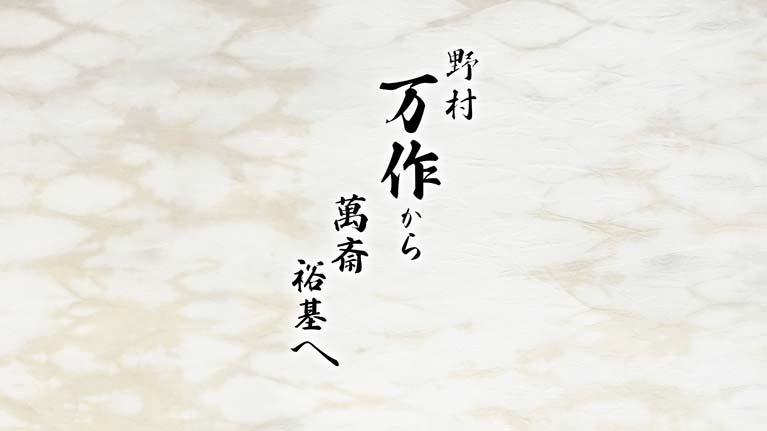 野村
万作から
萬斎
裕基へ